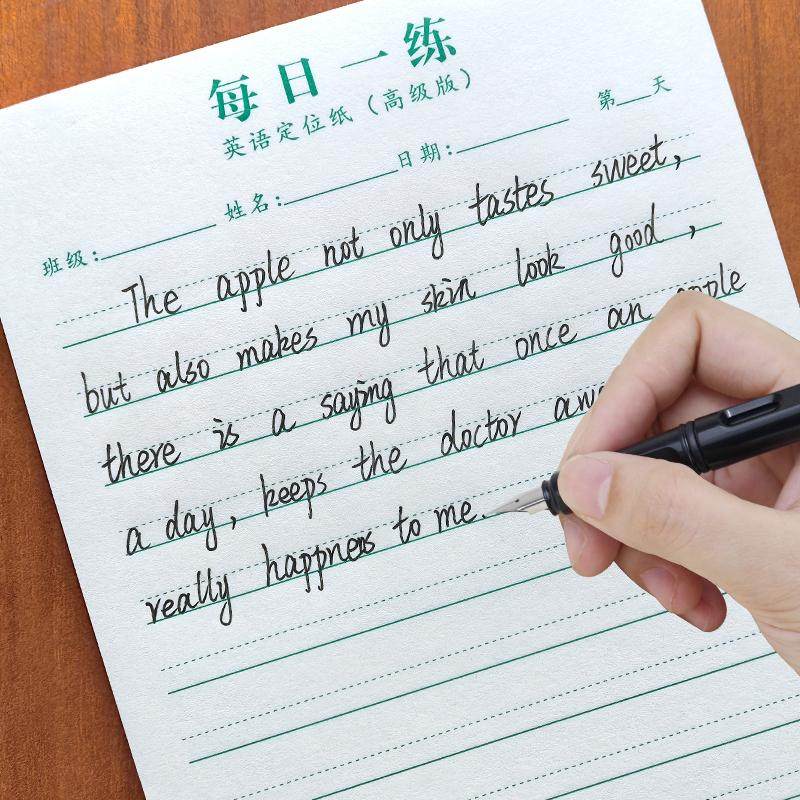 每日一练
英语定位纸（高级版）
第 天
班级: 姓名: 日期:
The apple not only tastes sweet,
but also makes my skin look good,
there is a saying that once an apple
a day, keeps the doctor
really happness to me.